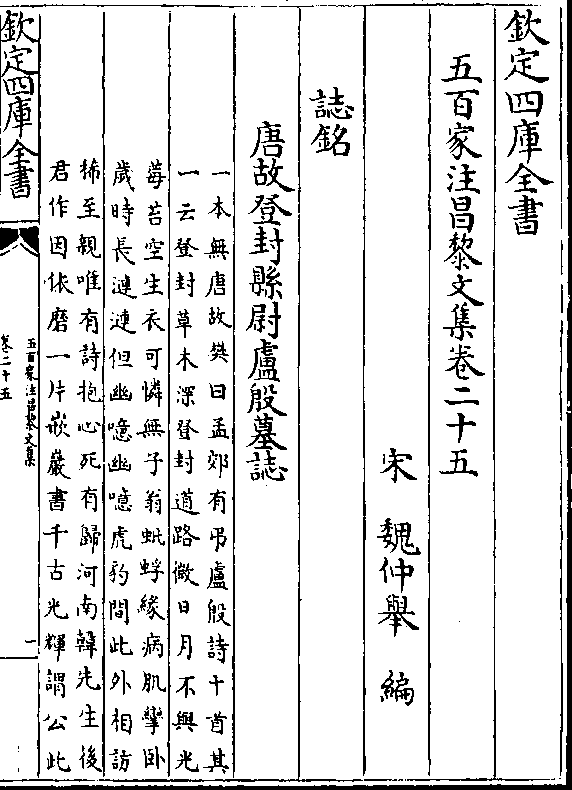 欽定四庫全書
五百家注昌黎文集卷二十五
宋 魏仲舉 編
誌銘
唐故登封縣尉盧殷墓誌
一本無唐故樊曰孟郊有弔盧殷詩十首其
一云登封草木深登封道路微日月不與光
莓苔空生衣可憐無子翁蚍蜉緣病肌攣卧
歲時長漣漣但幽噫幽噫虎豹間此外相訪
稀至親唯有詩抱心死有歸河南韓先生後
君作因依磨一片嵌巖書千古光輝謂公此
欽定四庫全書
五百家注昌黎文集
卷二十五
一